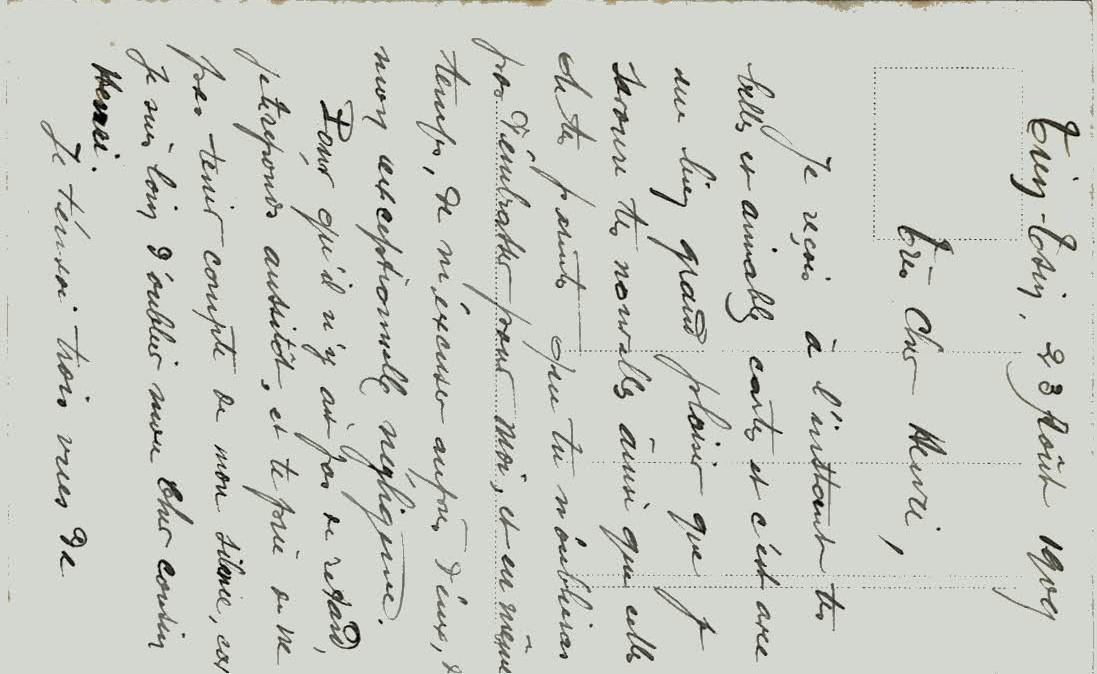 Tien-Tsin, 23 Août 1909
Très Cher Henri,
Je reçois à l'instant tes
belles et aimables cartes et c'est avec
un bien grand plaisir que j
savoure tes nouvelles ainsi que celles
de tes parents que tu n'oublieras
pas d'embrasser pour moi, et en même
temps, de m'excuser auprès d'eux, d
mon exceptionnelle négligence.
Pour qu'il n'y ait pas de retard,
je te réponds aussitôt, et te prie de ne
pas tenir compte de mon silence, car
je suis loin d'oublier mon Cher cousin
Henri.
Je t'envoi trois vues de